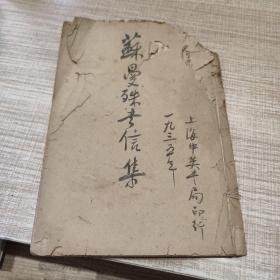 蘇曼殊書信集
上海中英書局印行
一九三五年